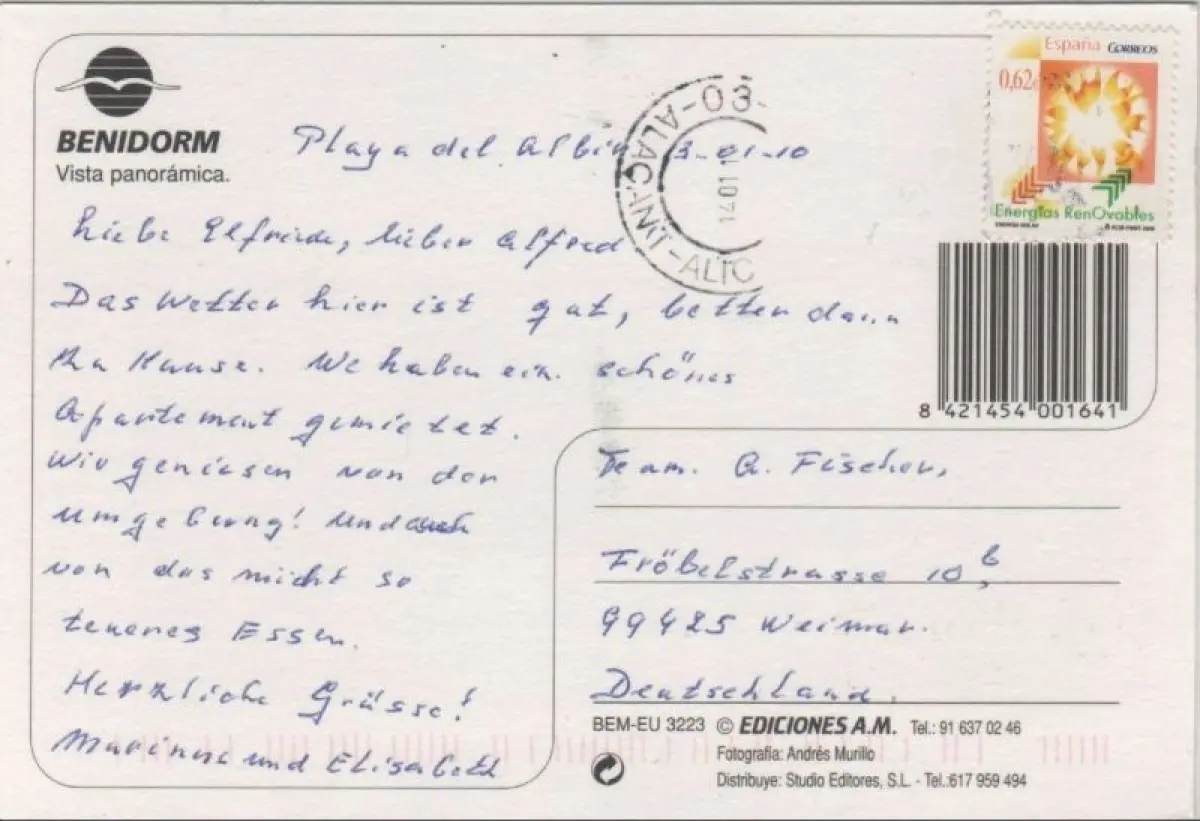 BENIDORM
Vista panorámica.
Playa del Albir 3-01-10
Liebe Elfriede, lieber Alfred
Das Wetter hier ist gut, better dann
zu Hause. We haben ein schönes
Apartement gemietet.
Wir geniesen von der
Umgebung! Und auch
von das nicht so
teueres Essen.
Herzliche Grüsse!
Marinus und Elisabeth
-03-
ALACANT-ALIC
14 01
España CORREOS
0,62€
Energías RenOvables
8 421454 001641
Fam. A. Fischer,
Fröbelstrasse 10 b,
99425 Weimar.
Deutschland.
BEM-EU 3223 © EDICIONES A.M. Tel.: 91 637 02 46
Fotografia: Andrés Murillo
Distribuye: Studio Editores, S.L. - Tel.:617 959 494